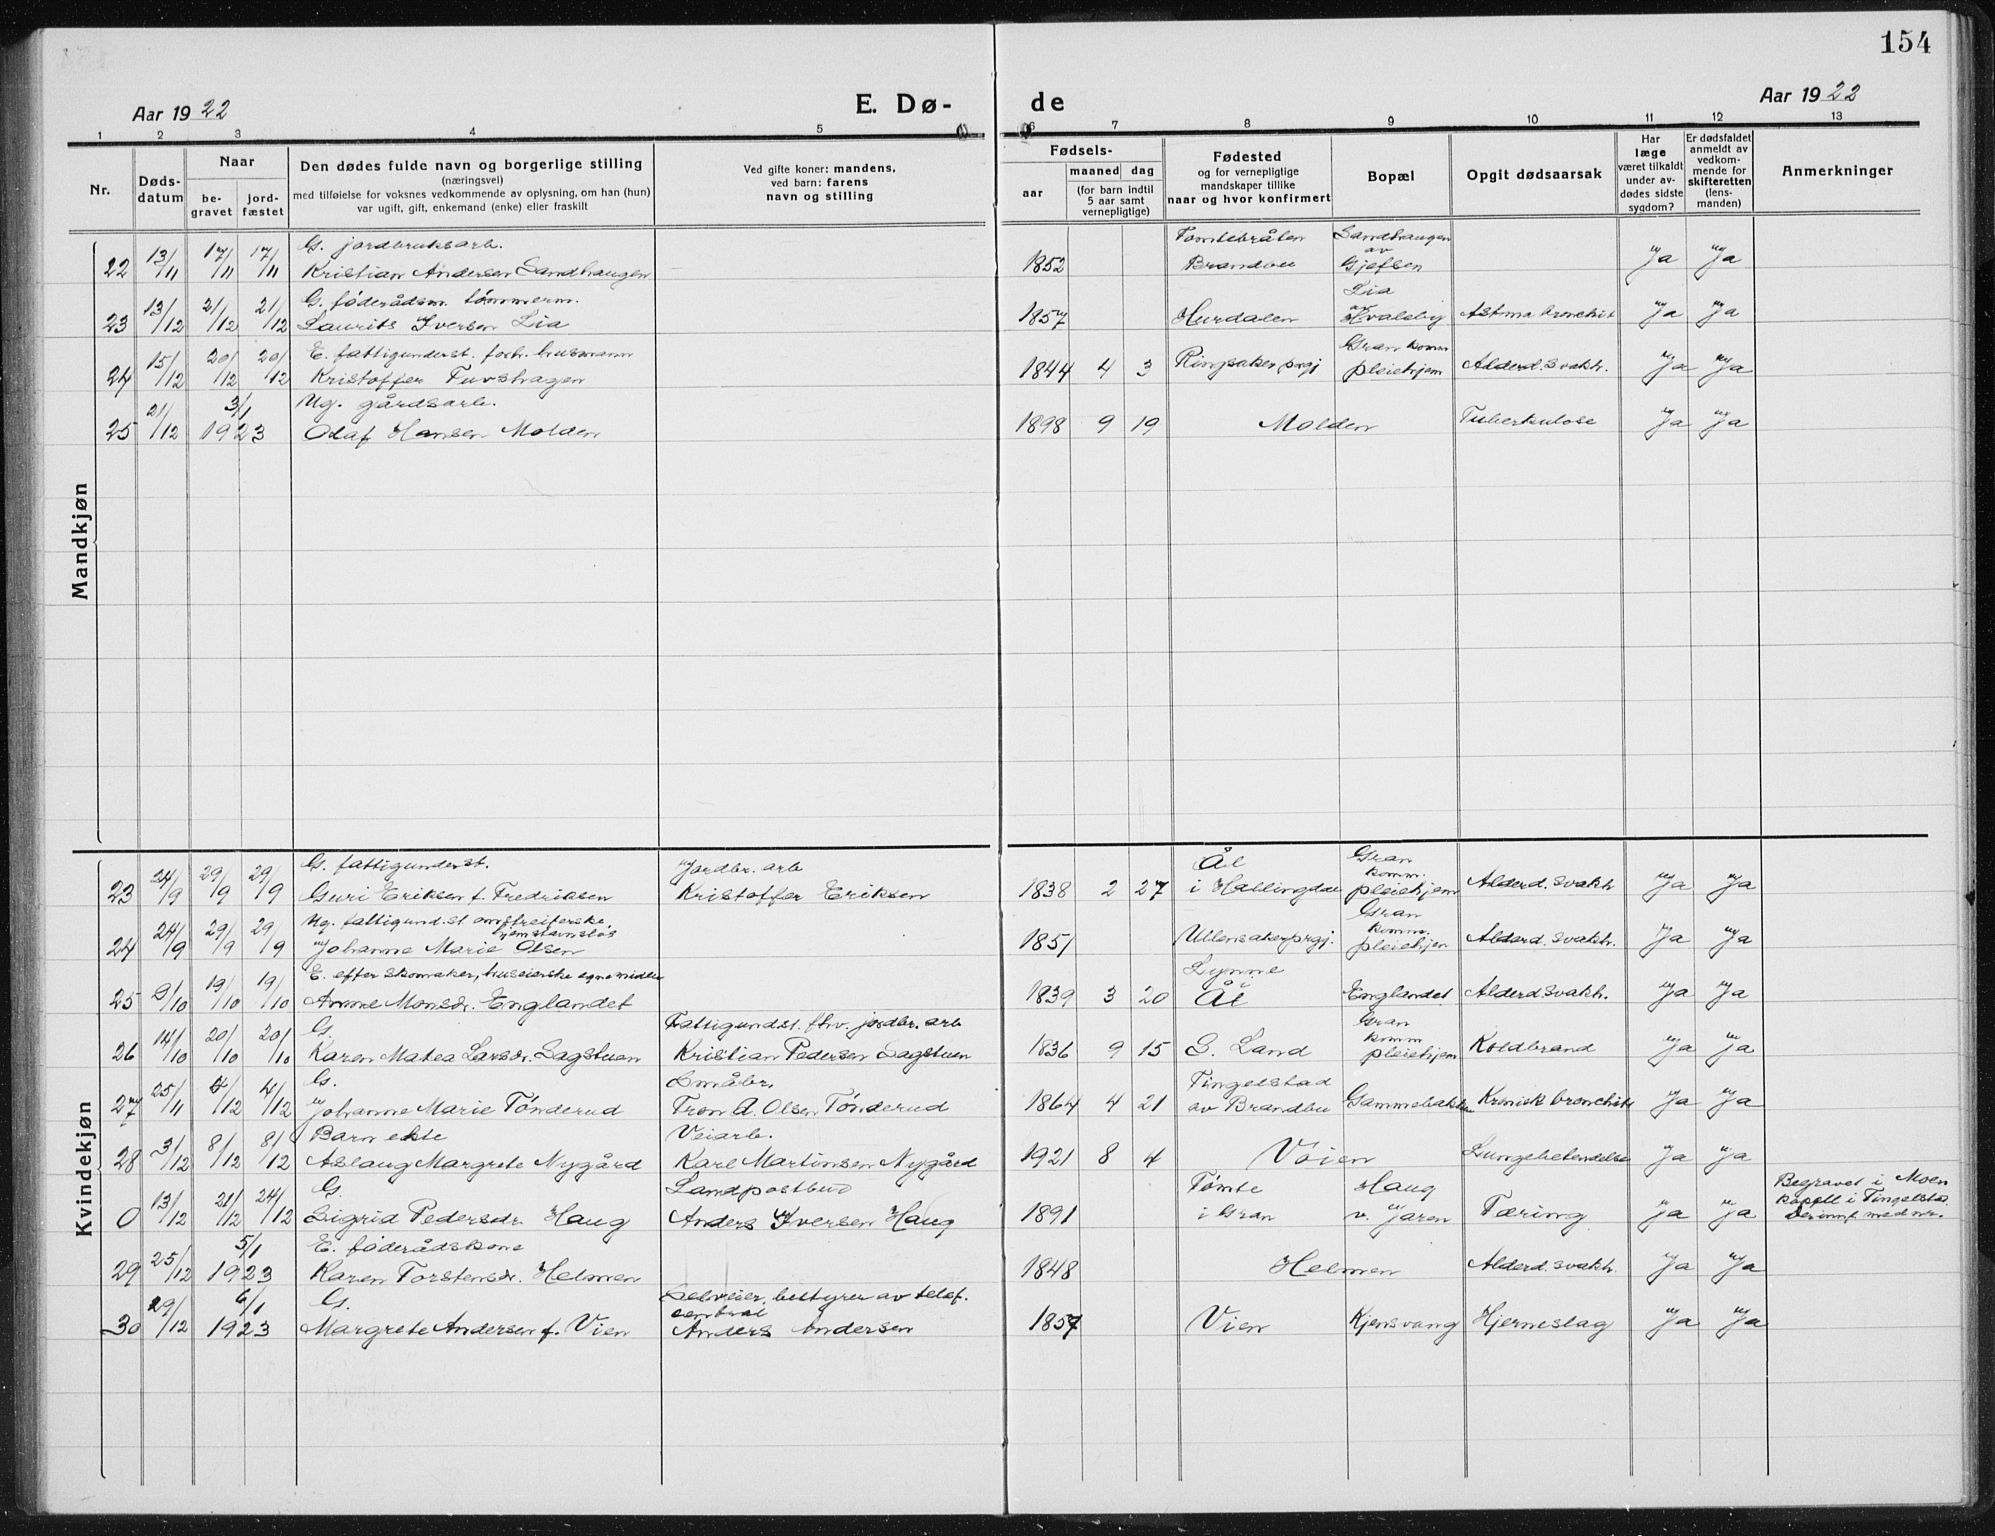 154
Aar 1922
E. Dø-
de
Aar 1922
1 2 3 4 5 6 7 8 9 10 11 12 13
Nr.
Døds-
datum
Naar
be-
gravet
jord-
fæstet
Den dødes fulde navn og borgerlige stilling
(næringsvei)
med tilføielse for voksnes vedkommende av oplysning, om han (hun)
var ugift, gift, enkemand (enke) eller fraskilt
Ved gifte koner: mandens,
ved barn: farens
navn og stilling
Fødsels-
aar
maaned dag
(for barn indtil
5 aar samt
vernepligtige)
Fødested
og for vernepligtige
mandskaper tillike
naar og hvor konfirmert
Bopæl
Opgit dødsaarsak
Har
læge
været tilkaldt
under av-
dødes sidste
sygdom?
Er dødsfaldet
anmeldt av
vedkom-
mende for
skifteretten
(lens-
manden)
Anmerkninger
Mandkjøn
G. jordbruksarb. Tomtebråten Sandhaugen
av
22 13/11 17/11 17/11 Kristian Andersen Sandhaugen 1852 Brandbu Gjefsen Ja Ja
G. føderådsm. tømmerm. Lia
av
23 13/12 21/12 21/12 Laurits Iversen Lia 1857 Hurdalen Hvalsby Astma bronchit Ja Ja
E. fattigunderst. forh. husmann Gran komm
24 15/12 20/12 20/12 Kristoffer Tuvshagen 1844 4 3 Ringsaker prgj pleiehjem Alderd. svakh. Ja Ja
Ug. gårdsarb.
25 21/12 3/1 1923 Olaf Hansen Molden 1898 9 19 Molden Tuberkulose Ja Ja
Kvindekjøn
G. fattigunderst. Jordbr. arb Ål Gran
komm.
23 24/9 29/9 29/9 Guri Eriksen f. Fredriksen Kristoffer Eriksen 1838 2 27 i Hallingdal pleiehjem Alderd. svakh Ja Ja
Ug. fattigund.st omstreiferske Gran
hjemstavnsløs komm.
24 24/9 29/9 29/9 Johanne Marie Olsen 1851 Ullensaker prgj. pleiehjem Alderd. svakh. Ja Ja
E. efter skomaker, huseierske egne midler Lynne
i
25 9/10 19/10 19/10 Anne Monsdr. Englandet 1839 3 20 Ål Englandet Alderd. svakh. Ja Ja
G. Fattigundst. fhv. jordbr. arb Gran
komm
26 14/10 20/10 20/10 Karen Matea Larsdr. Sagstuen Kristian Pedersen Sagstuen 1836 9 15 S. Land pleiehjem Koldbrand Ja Ja
G. Småbr. Tingelstad
27 25/11 4/12 4/12 Johanne Marie Tønderud Tron A. Olsen Tønderud 1864 4 21 av Brandbu Gammebakken Kronisk bronchitt Ja Ja
Barn ekte Veiarb.
28 3/12 8/12 8/12 Aslaug Margrete Nygård Karl Martinsen Nygård 1921 8 4 Vøien Lungebetendelse Ja Ja
G. Landpostbud Tømte Haug Begravet i Moen
kapell i Tingelstad
0 13/12 21/12 24/12 Sigrid Pedersdr. Haug Anders Iversen Haug 1891 i Gran v. Jaren Tæring Ja Ja Der innf. med nr.
E. føderådskone
29 25/12 5/1 1923 Karen Torstensdr. Helmen 1848 Helmen Alderd. svakh. Ja Ja
G. Selveier, bestyrer av telef.
sentral
30 29/12 6/1 1923 Margrete Andersen f. Vien Anders Andersen 1857 Vien Kjensvang Hjerneslag Ja Ja